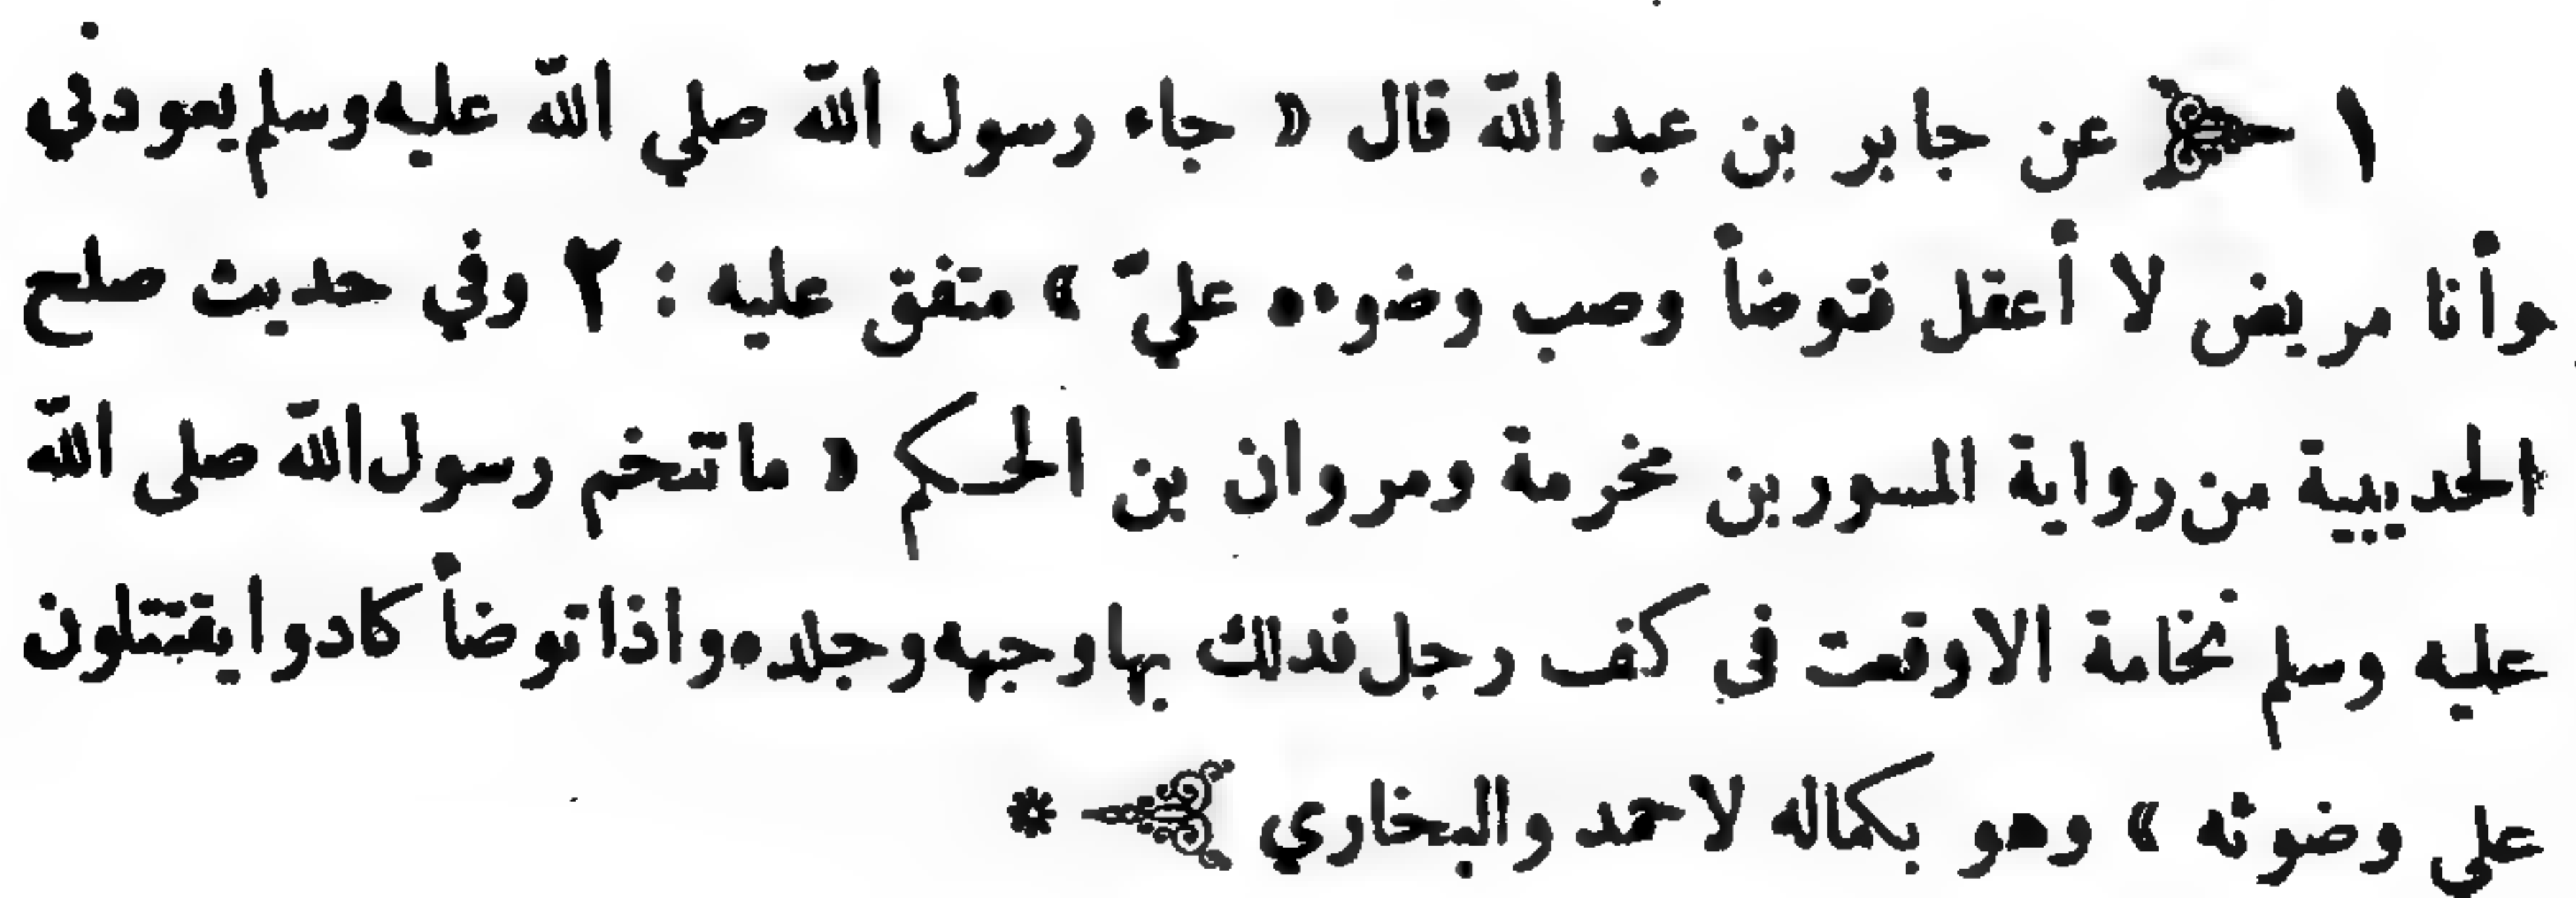 ١ عن جابر بن عبد الله قال « جاء رسول الله صلي الله عليه وسلم يعودني
وأنا مريض لا أعقل فتوضأ وصب وضوءه عليّ » متفق عليه : ٢ وفي حديث صلح
الحديبية من رواية المسور بن مخرمة ومروان بن الحكم « ما تنخم رسول الله صلى الله
عليه وسلم نخامة الا وقعت في كف رجل فدلك بها وجهه وجلده واذا توضأ كادوا يقتتلون
على وضوئه » وهو بكماله لاحمد والبخاري *